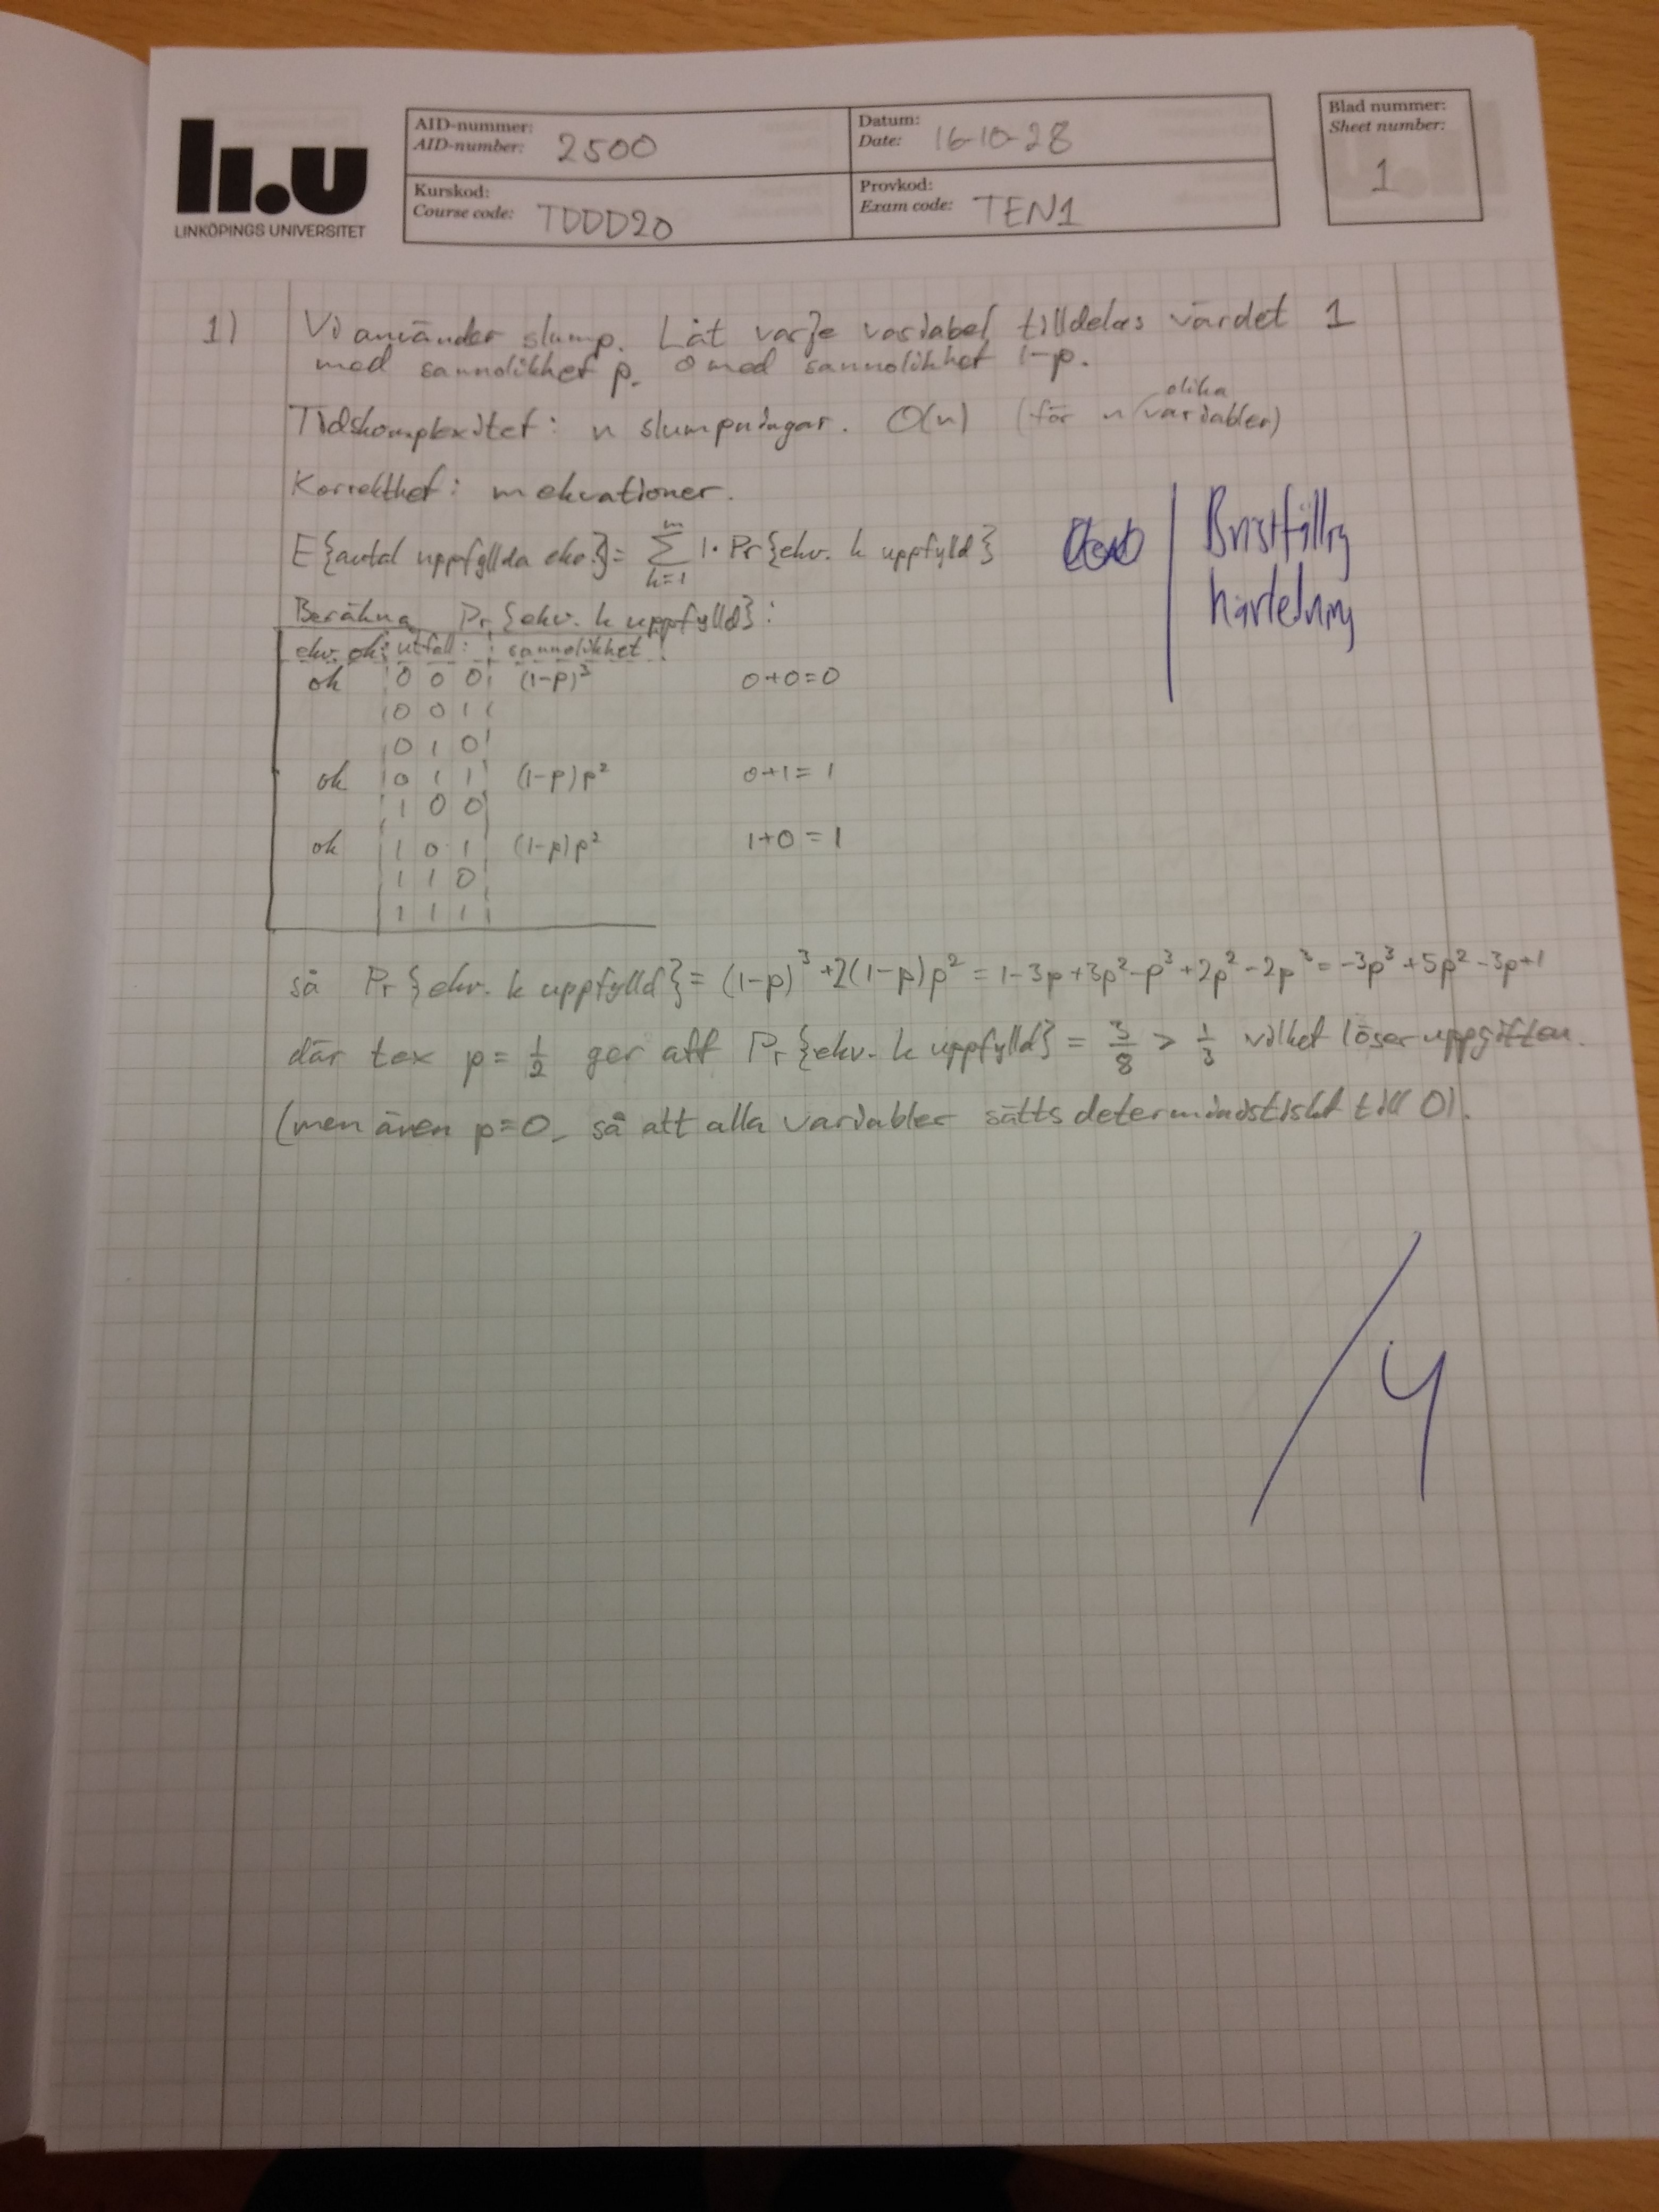 li.u
LINKÖPINGS UNIVERSITET
AID-nummer:
AID-number: 2500
Datum:
Date: 16-10-28
Blad nummer:
Sheet number:
1
Kurskod:
Course code: TDDD20
Provkod:
Exam code: TEN1
1) Vi använder slump. Låt varje variabel tilldelas värdet 1
med sannolikhet p. 0 med sannolikhet 1-p.
olika
Tidskomplexitet: n slumpningar. O(n) (för n variabler)
Korrekthet: m ekvationer.
E{antal uppfyllda ekv.}= Σ_{k=1}^{m} 1·Pr{ekv. k uppfylld}
Bristfällig
härledning
Beräkna Pr{ekv. k uppfylld}:
ekv. ok: utfall: sannolikhet
ok 0 0 0 (1-p)³ 0+0=0
0 0 1
0 1 0
ok 0 1 1 (1-p)p² 0+1=1
1 0 0
ok 1 0 1 (1-p)p² 1+0=1
1 1 0
1 1 1
så Pr{ekv. k uppfylld}= (1-p)³+2(1-p)p² = 1-3p+3p²-p³+2p²-2p³=-3p³+5p²-3p+1
där tex p=1/2 ger att Pr{ekv. k uppfylld} = 3/8 > 1/3 vilket löser uppgiften.
(men även p=0, så att alla variabler sätts deterministiskt till 0).
/4